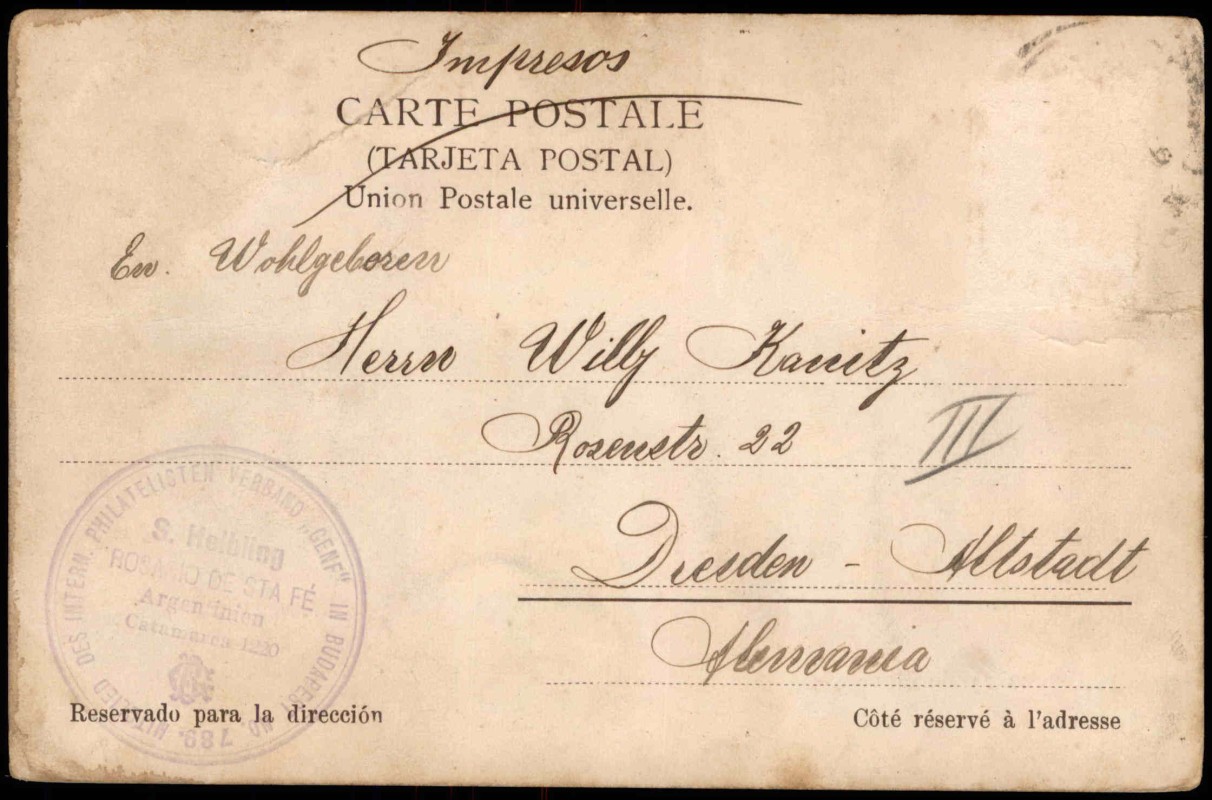 Impresos
CARTE POSTALE
(TARJETA POSTAL)
Union Postale universelle.
Ew. Wohlgeboren
Herrn Willy Kanitz
Rosenstr. 22
III
Dresden - Altstadt
Alemania
MITGLIED DES INTERN. PHILATELISTEN VERBAND „GENF" IN BUDAPEST NO 789.
S. Helbling
ROSARIO DE STA FÉ
Argentinien
Catamarca 1220
Reservado para la dirección
Côté réservé à l'adresse